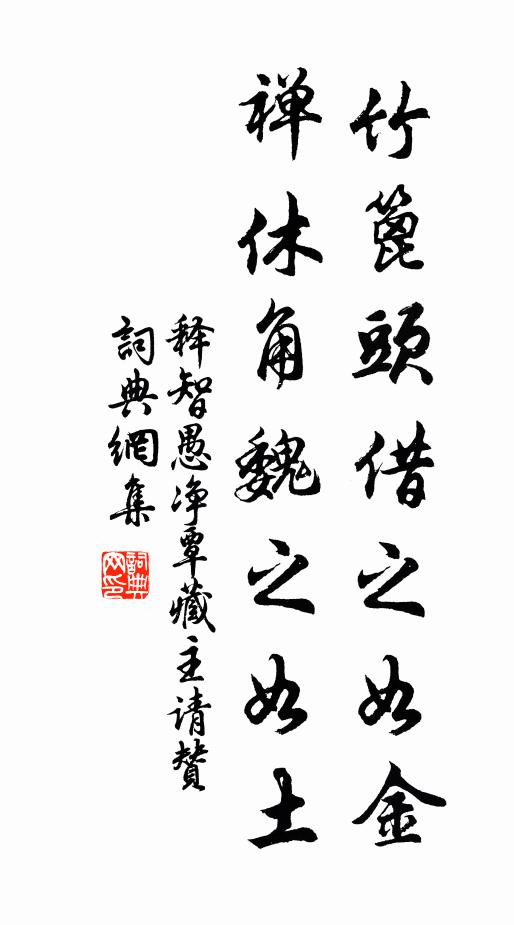 竹篦頭借之如金
禅休角魏之如土
释智愚净覃藏主请赞
詞典網集
詞典网印